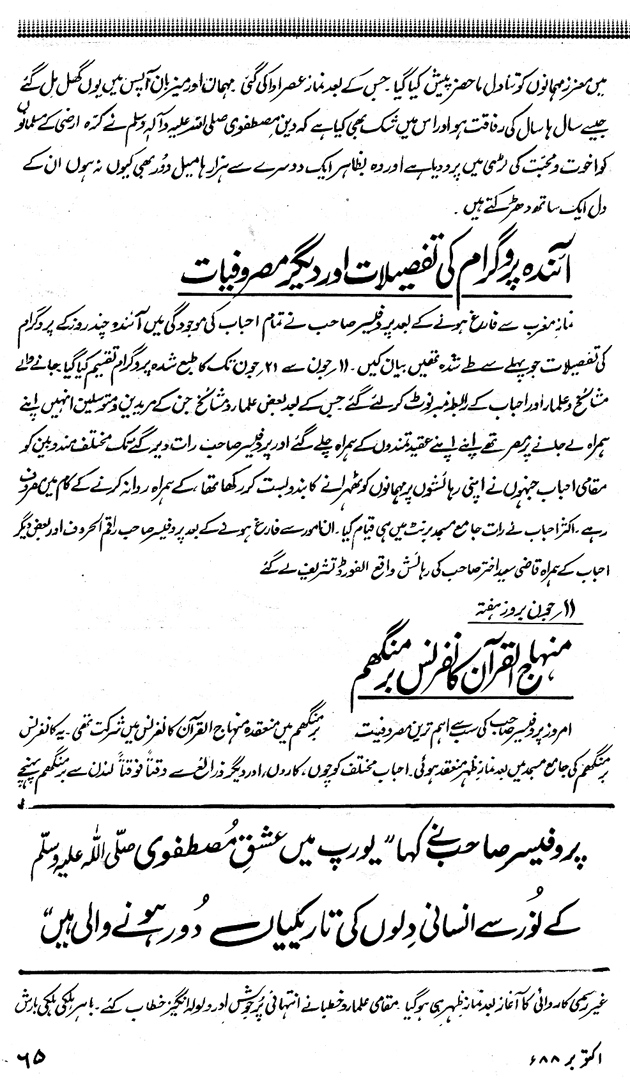 میں معزز مہمانوں کو تناول ماحضر پیش کیا گیا۔ جس کے بعد نماز عصر ادا کی گئی۔ مہمان اور میزبان آپس میں یوں گھل مل گئے
جیسے سال ہا سال کی رفاقت ہو اور اس میں شک بھی کیا ہے کہ دین مصطفوی صلی اللہ علیہ وآلہ وسلم نے کرّہ ارضی کے مسلمانوں
کو اخوت و محبت کی لڑی میں پرو دیا ہے اور وہ بظاہر ایک دوسرے سے ہزار ہا میل دور بھی کیوں نہ ہوں ان کے
دل ایک ساتھ دھڑکتے ہیں۔
آئندہ پروگرام کی تفصیلات اور دیگر مصروفیات
نماز مغرب سے فارغ ہونے کے بعد پروفیسر صاحب نے تمام احباب کی موجودگی میں آئندہ چند روز کے پروگرام
کی تفصیلات جو پہلے سے طے شدہ تھیں بیان کیں۔ ۱۱؍جون سے ۲۱؍جون تک کا طبع شدہ پروگرام تقسیم کیا گیا جانے والے
مشائخ و علماء اور احباب کے رابطہ نمبر نوٹ کر لئے گئے۔ جس کے بعد بعض علماء و مشائخ جن کے مریدین و متوسلین انہیں اپنے
ہمراہ لے جانے پر مصر تھے اپنے اپنے عقیدتمندوں کے ہمراہ چلے گئے اور پروفیسر صاحب رات دیر گئے تک مختلف مندوبین کو
مقامی احباب جنہوں نے اپنی رہائشوں پر مہمانوں کو ٹھہرانے کا بندوبست کر رکھا تھا، کے ہمراہ روانہ کرنے کے کام میں مصروف
رہے۔ اکثر احباب نے رات جامع مسجد برنٹ میں ہی قیام کیا۔ ان امور سے فارغ ہونے کے بعد پروفیسر صاحب راقم الحروف اور بعض دیگر
احباب کے ہمراہ قاضی سعید اختر صاحب کی رہائش واقع الفورڈ تشریف لے گئے
۱۱؍جون بروز ہفتہ
منہاج القرآن کانفرنس برمنگھم
امروز پروفیسر صاحب کی سب سے اہم ترین مصروفیت برمنگھم میں منعقدہ منہاج القرآن کانفرنس میں شرکت تھی۔ یہ کانفرنس
برمنگھم کی جامع مسجد میں بعد نماز ظہر منعقد ہوئی۔ احباب مختلف کوچوں، کاروں، اور دیگر ذرائع سے وقتاً فوقتاً لندن سے برمنگھم پہنچے
پروفیسر صاحب نے کہا "یورپ میں عشقِ مُصطفوی صلّی اللہ علیہ وسلّم
کے نُور سے انسانی دِلوں کی تاریکیاں دُور ہونے والی ہیں"
غیر رسمی کاروائی کا آغاز بعد نماز ظہر ہی ہو گیا۔ مقامی علماء و خطبا نے انتہائی پُرجوش اور ولولہ انگیز خطاب کئے۔ باہر ہلکی ہلکی بارش
اکتوبر ۸۸ء
۶۵